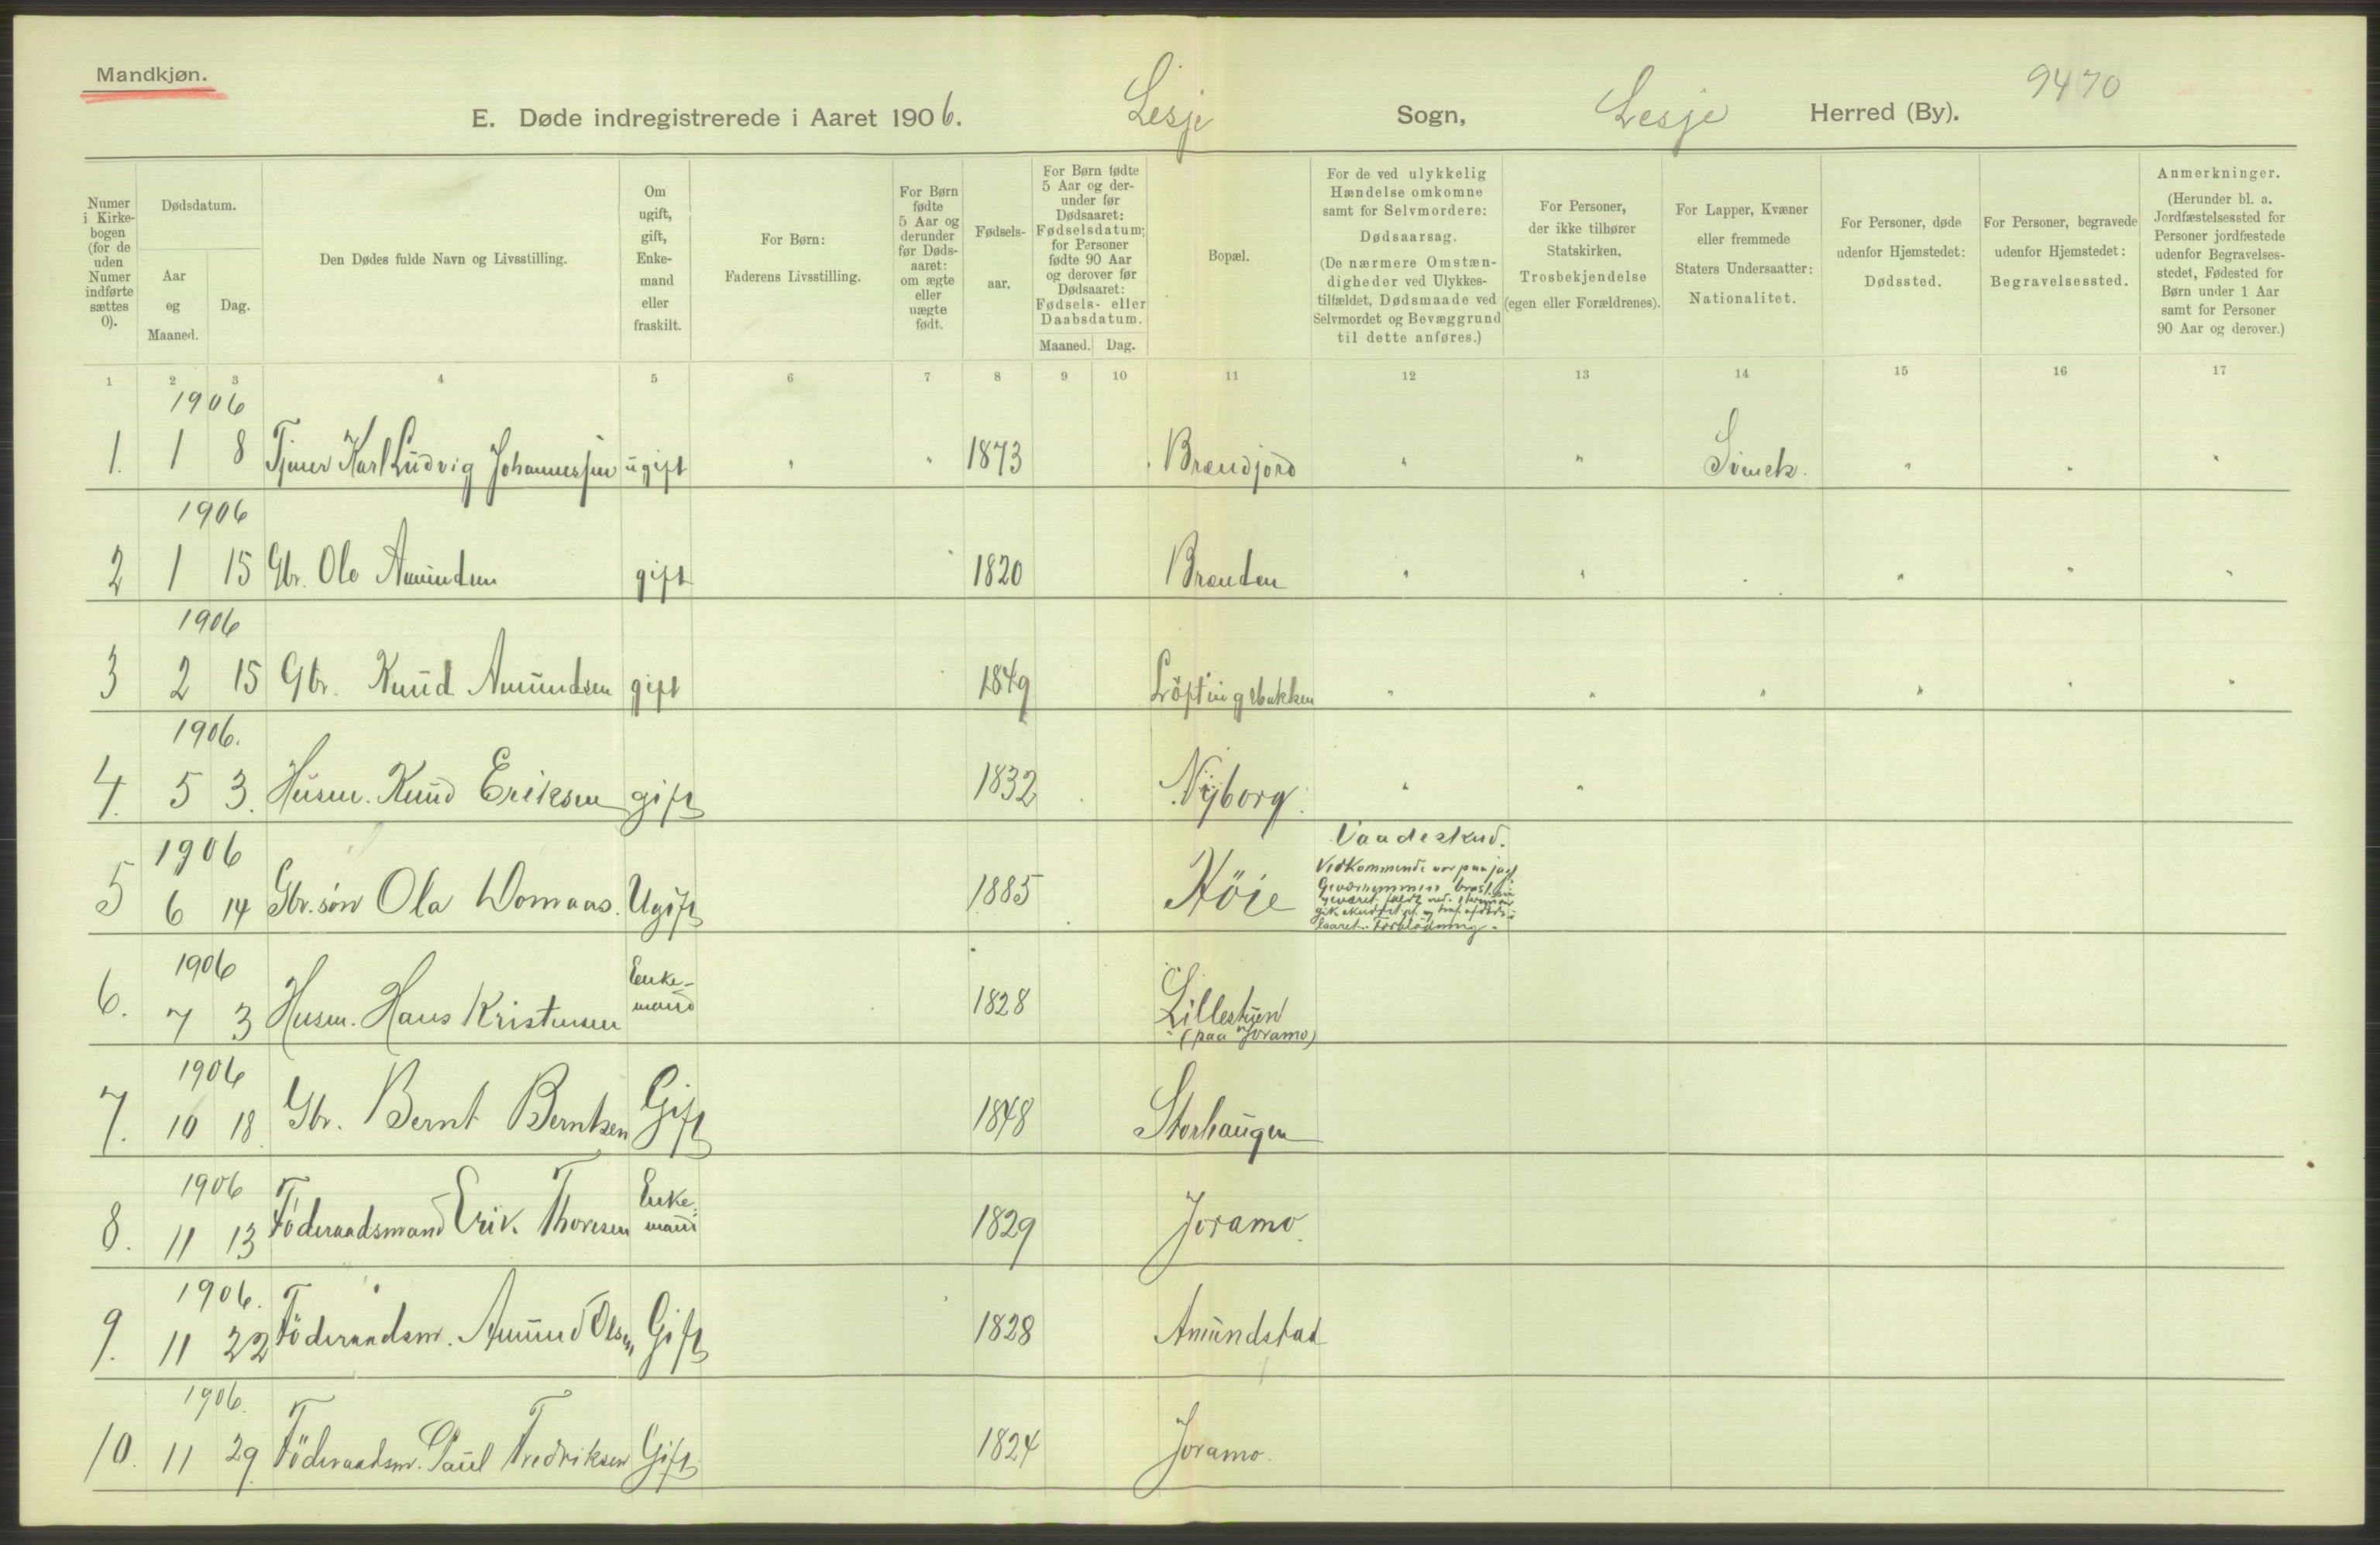 Mandkjøn.
9470
E. Døde indregistrerede i Aaret 1906. Lesje Sogn, Lesje Herred (By).
Numer i Kirkebogen (for de uden Numer indførte sættes 0).
Dødsdatum.
Aar og Maaned.
Dag.
Den Dødes fulde Navn og Livsstilling.
Om ugift, gift, Enkemand eller fraskilt.
For Børn: Faderens Livsstilling.
For Børn fødte 5 Aar og derunder før Dødsaaret: om ægte eller uægte født.
Fødselsaar.
For Børn fødte 5 Aar og derunder før Dødsaaret: Fødselsdatum; for Personer fødte 90 Aar og derover før Dødsaaret: Fødsels- eller Daabsdatum.
Maaned. Dag.
Bopæl.
For de ved ulykkelig Hændelse omkomne samt for Selvmordere: Dødsaarsag. (De nærmere Omstændigheder ved Ulykkestilfældet, Dødsmaade ved Selvmordet og Bevæggrund til dette anføres.)
For Personer, der ikke tilhører Statskirken, Trosbekjendelse (egen eller Forældrenes).
For Lapper, Kvæner eller fremmede Staters Undersaatter: Nationalitet.
For Personer, døde udenfor Hjemstedet: Dødssted.
For Personer, begravede udenfor Hjemstedet: Begravelsessted.
Anmerkninger. (Herunder bl. a. Jordfæstelsessted for Personer jordfæstede udenfor Begravelsesstedet, Fødested for Børn under 1 Aar samt for Personer 90 Aar og derover.)
1 2 3 4 5 6 7 8 9 10 11 12 13 14 15 16 17
1906
1. 1 8 Tjener Karl Ludvig Johannessen ugift " " 1873 Brændjord " " Svensk. " " "
1906
2 1 15 Gbr. Ole Amundsen gift " 1820 Brænden " " " " " "
1906
3 2 15 Gbr. Knud Amundsen gift 1849 Löftingsbakken " " " " " "
1906.
4. 5 3. Husm. Knud Eriksen gift 1832 Nyborg. " "
1906
5 6 14 Gbr.søn Ola Domaas. Ugift 1885 Höie Vaadeskud.
Vedkommende var paa jagt
Laaret. Forblödning.
1906
6. 7 3 Husm. Hans Kristensen Enkemand 1828 Lillestuen
(paa Joramo)
1906
7. 10 18. Gbr. Bernt Berntsen Gift 1848 Storhaugen
1906
8. 11 13 Föderaadsmand Erik Thoresen Enkemand 1829 Joramo.
1906.
9. 11 22 Föderaadsm. Amund Olsen Gift 1828 Amundstad
1906.
10. 11 29 Föderaadsm. Paul Fredriksen Gift 1824 Joramo.